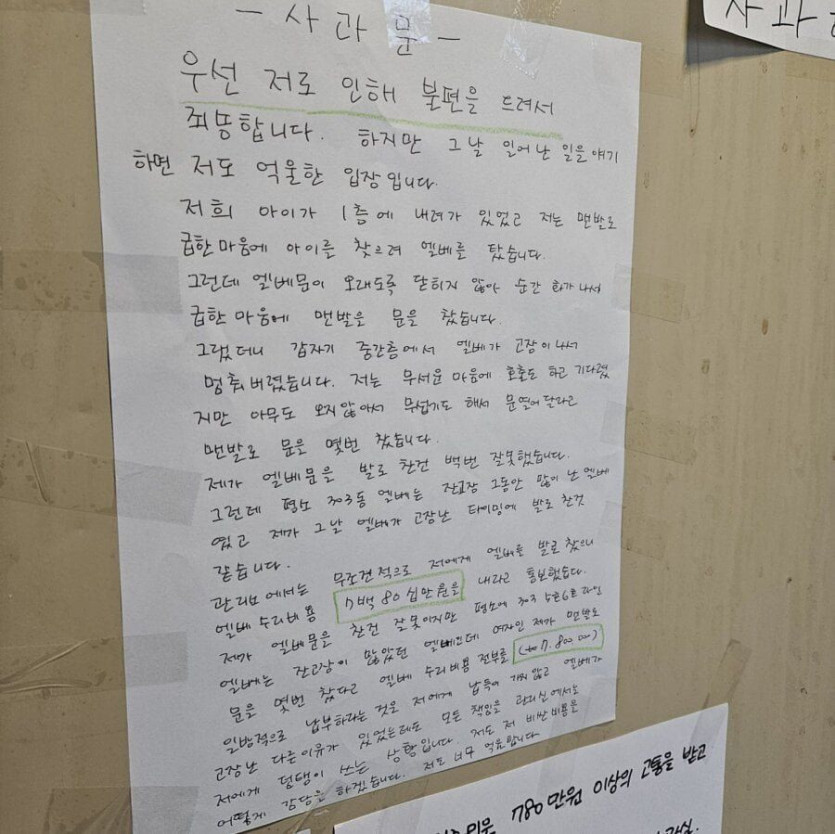 - 사 과 문 -
우선 저로 인해 불편을 드려서
죄송합니다. 하지만 그날 일어난 일을 얘기
하면 저도 억울한 입장입니다.
저희 아이가 1층에 내려가 있었고 저는 맨발로
급한마음에 아이를 찾으려 엘베를 탔습니다.
그런데 엘베문이 오래도록 닫히지 않아 순간 화가나서
급한마음에 맨발을 문을 찼습니다.
그랬더니 갑자기 중간층에서 엘베가 고장이나서
멈춰버렸습니다. 저는 무서운 마음에 호출도 하고 기다렸
지만 아무도 오지않아서 무섭기도 해서 문열어달라고
맨발로 문을 몇번 찼습니다.
제가 엘베문을 발로 찬건 백번 잘못했습니다.
그런데 평소 303동 엘베는 잔고장 그동안 많이 난 엘베
였고 제가 그날 엘베가 고장난 타이밍에 발로 찬것
같습니다.
관리소에서는 무조건적으로 저에게 엘베를 발로 찼으니
엘베 수리비용 7백 80십만원을 내라고 통보했습니다.
제가 엘베문을 찬건 잘못이지만 평소에 303 5호6호라인
엘베는 잔고장이 많았던 엘베인데 여자인 제가 맨발로
문을 몇번 찼다고 엘베 수리비용 전부를 (₩7.800.000)
일방적으로 납부하라는 것은 저에게 납득이 가지 않고 엘베가
고장난 다른이유가 있었을텐데도 모든 책임을 관리실에서는
저에게 덤탱이 쓰는 상황입니다. 저도 저 비싼비용을
어떻게 감당을 하겠습니다. 저도 너무 억울합니다
사 과
780만원 이상의 고통을 받고